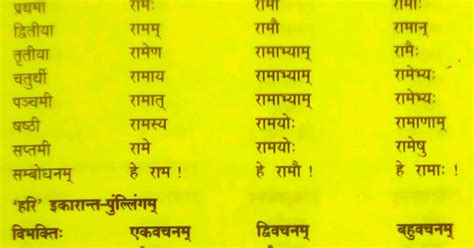 प्रथमा रामः रामौ रामाः
द्वितीया रामम् रामौ रामान्
तृतीया रामेण रामाभ्याम् रामैः
चतुर्थी रामाय रामाभ्याम् रामेभ्यः
पञ्चमी रामात् रामाभ्याम् रामेभ्यः
षष्ठी रामस्य रामयोः रामाणाम्
सप्तमी रामे रामयोः रामेषु
सम्बोधनम् हे राम ! हे रामौ ! हे रामाः !
'हरि' इकारान्त-पुंल्लिंगम्
विभक्तिः एकवचनम् द्विवचनम् बहुवचनम्